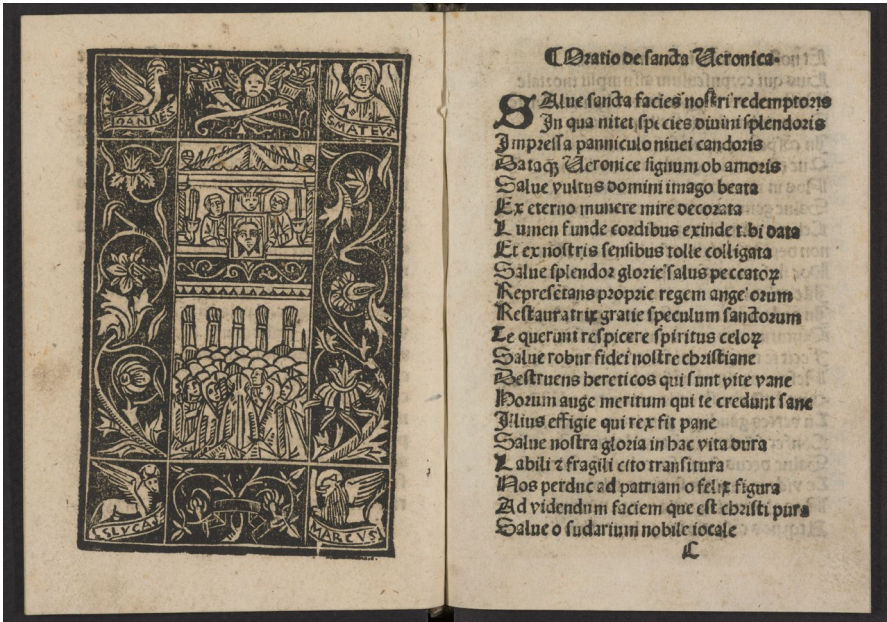 IOANNES
S MATEVS
S LVCAS
MARCVS
⁋ Oratio de sancta Ueronica.
SAlue sancta facies nostri redemptoris
In qua nitet species diuini splendoris
Impressa panniculo niuei candoris
Dataqꝫ Ueronice signum ob amoris
Salue vultus domini imago beata
Ex eterno munere mire decorata
Lumen funde cordibus exinde tibi data
Et ex nostris sensibus tolle colligata
Salue splendor glorie salus peccatoꝝ
Represẽtans proprie regem angelorum
Restauratrix gratie speculum sanctorum
Te querunt respicere spiritus celoꝝ
Salue robur fidei nostre christiane
Destruens hereticos qui sunt vite vane
Horum auge meritum qui te credunt sane
Illius effigie qui rex fit pane
Salue nostra gloria in hac vita dura
Labili ⁊ fragili cito transitura
Nos perduc ad patriam o felix figura
Ad videndum faciem que est christi pura
Salue o sudarium nobile iocale
C